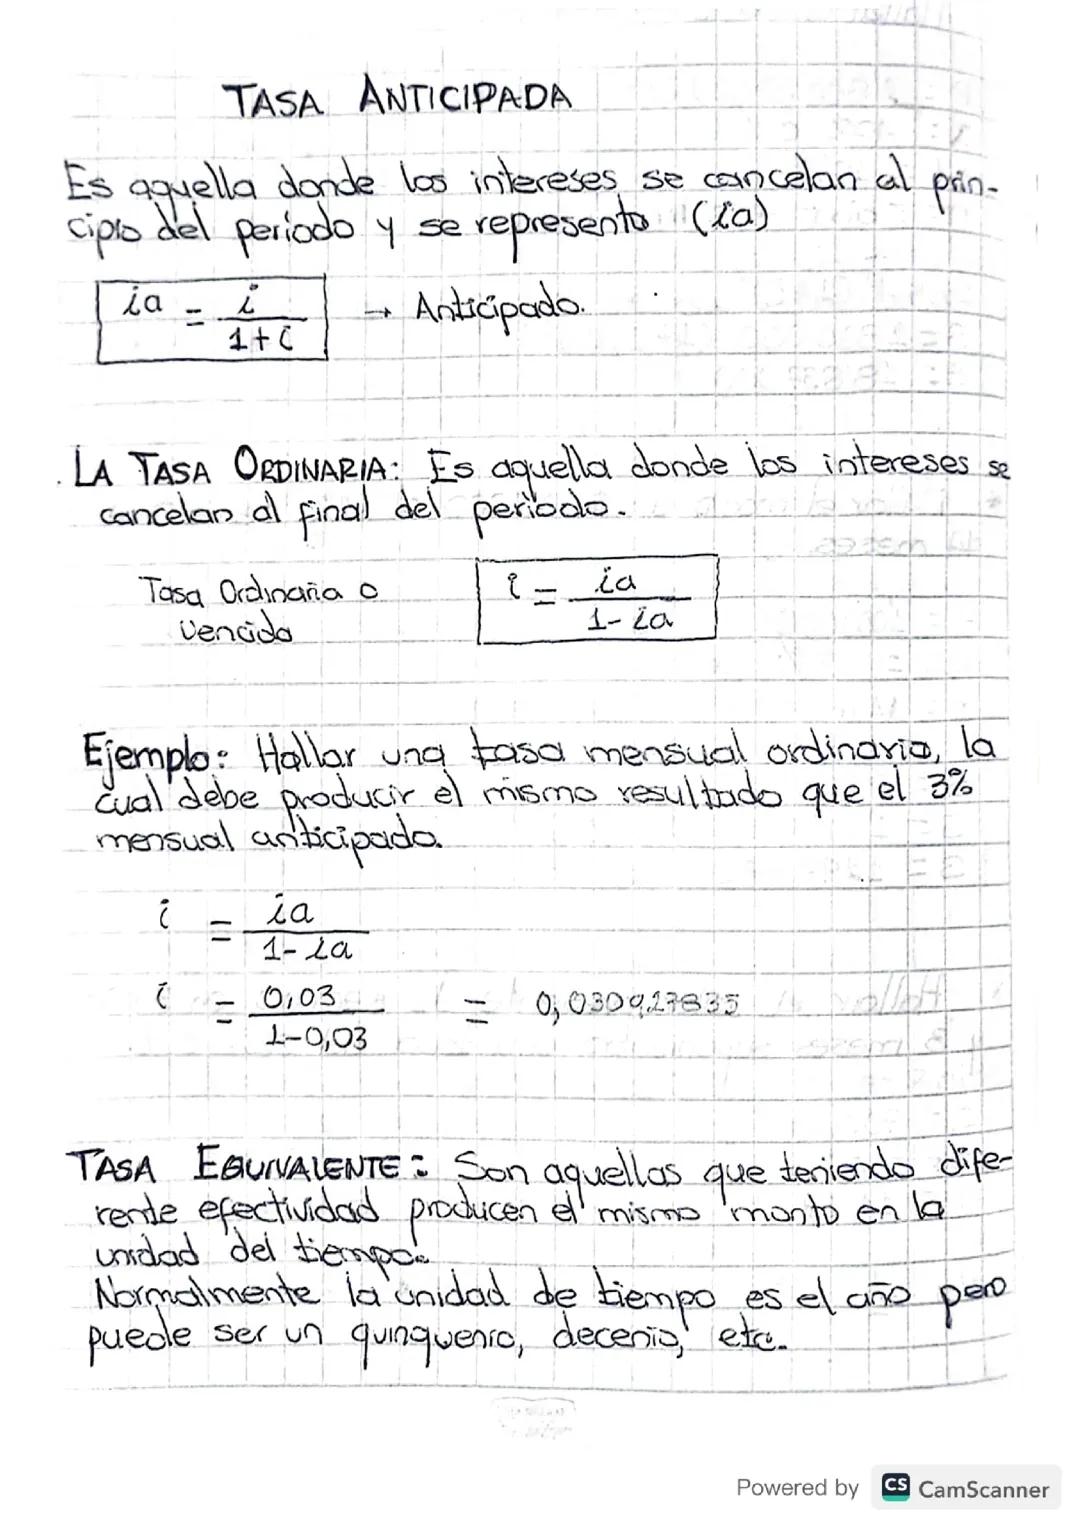 TASA ANTICIPADA
Es aquella donde los intereses se cancelan al prin-
cipio del periodo y se representa (ia)
ia = i / 1+i → Anticipado.
LA TASA ORDINARIA: Es aquella donde los intereses se
cancelan al final del periodo.
Tasa Ordinaria o i = ia / 1-ia
Vencida
Ejemplo: Hallar una tasa mensual ordinaria, la
cual debe producir el mismo resultado que el 3%
mensual anticipado.
i = ia / 1-ia
i = 0,03 / 1-0,03 = 0,030927835
TASA EQUIVALENTE: Son aquellas que teniendo dife-
rente efectividad producen el mismo monto en la
unidad del tiempo.
Normalmente la unidad de tiempo es el año pero
puede ser un quinquenio, decenio, etc.
Powered by CS CamScanner